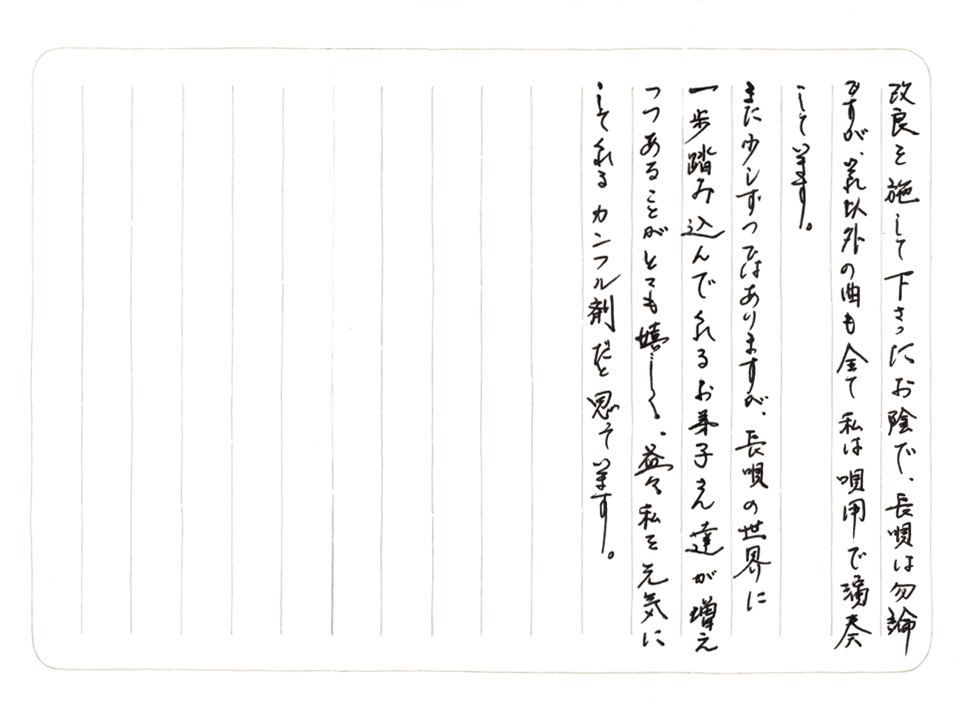 改良を施して下さったお陰で、長唄は勿論
ですが、それ以外の曲も全て私は唄用で演奏
して居ます。
まだ少しずつではありますが、長唄の世界に
一歩踏み込んでくれるお弟子さん達が増え
つつあることがとても嬉しく、益々私を元気に
してくれるカンフル剤だと思って居ます。